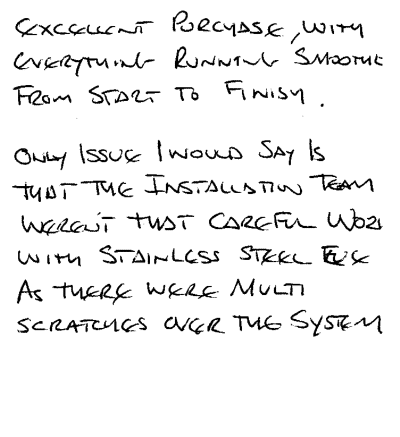 EXCELLENT PURCHASE, WITH
EVERYTHING RUNNING SMOOTH
FROM START TO FINISH.
ONLY ISSUE I WOULD SAY IS
THAT THE INSTALLATION TEAM
WEREN'T THAT CAREFUL
WITH STAINLESS STEEL
AS THERE WERE MULTI
SCRATCHES OVER THE SYSTEM